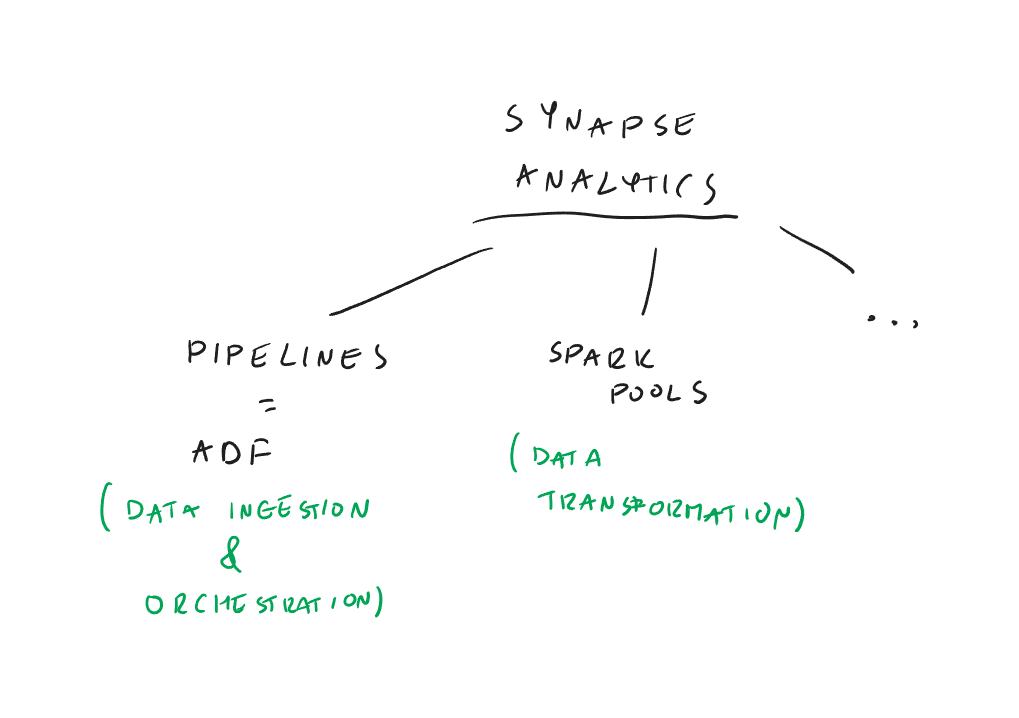 SYNAPSE
ANALYTICS
PIPELINES
=
ADF
(DATA INGESTION
&
ORCHESTRATION)
SPARK
POOLS
(DATA
TRANSFORMATION)
...